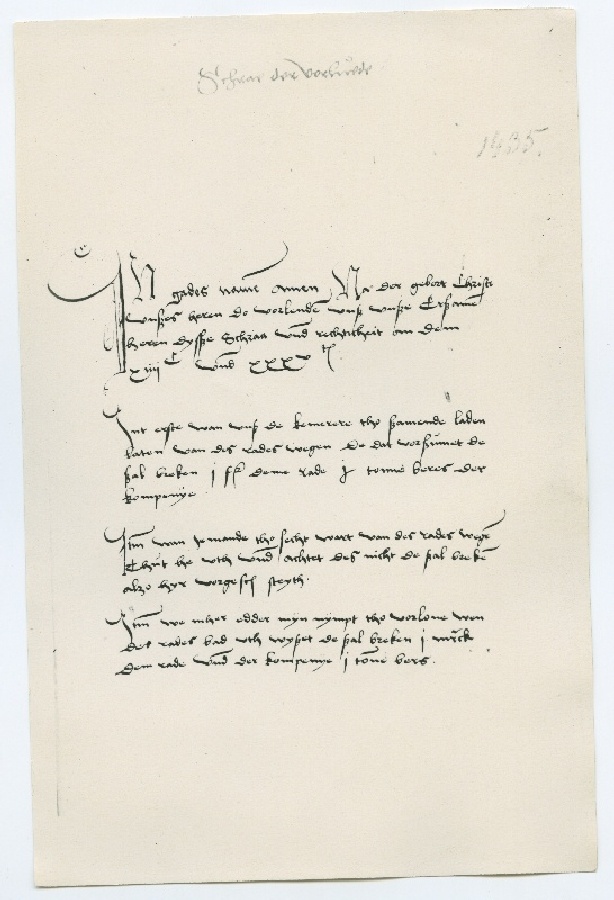 Schra der vorlude
1435.
IN gades name amen Na der gebort Christi
unses heren do vorlende uns unse Ersame
heren dysse Schraa und rechticheit am dem
xiiii C und xxxv
Int erste wan uns de kemerere tho samende laden
laten van des rades wegen de dat vorsumet de
sal breken j deme rade j tonne beres der
kompenye
Itm wan jemande tho secht wert van des rades wege
Thut he uth und achtet des nicht de sal breke
alzo hyr vorgesc steyth.
Itm we mher edder myn nympt tho vorlone wen
des rades bad uth wyset de sal breken j marck
deme rade und der kompenye j tone bers.